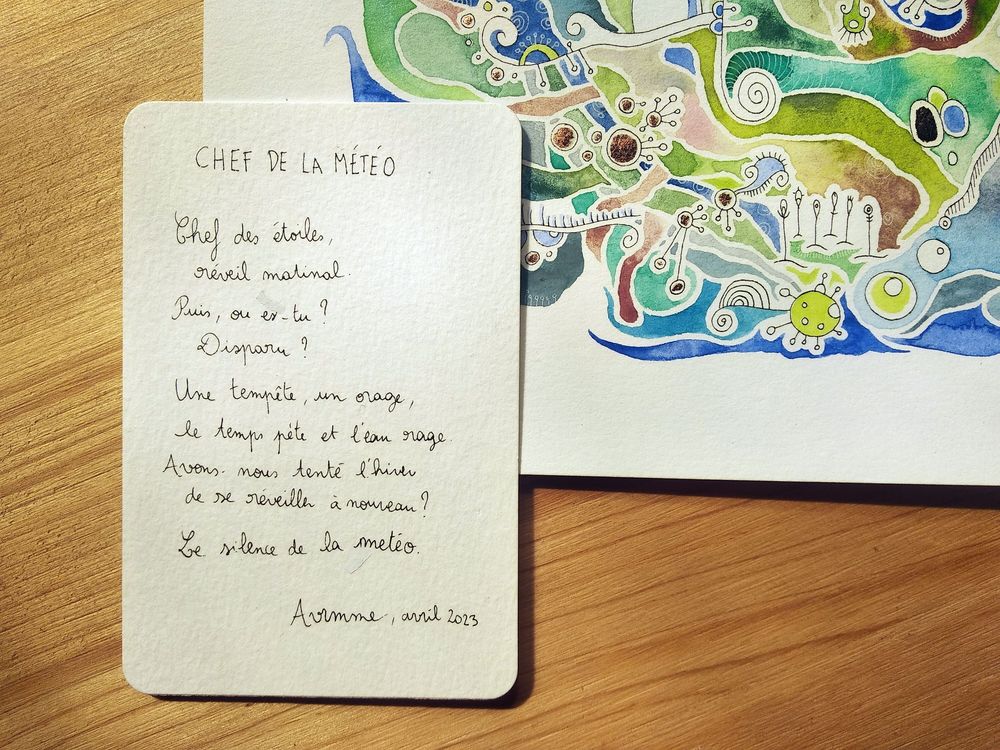 CHEF DE LA MÉTÉO
Chef des étoiles,
réveil matinal.
Puis, ou es-tu ?
Disparu ?
Une tempête, un orage,
le temps pète et l'eau rage.
Avons-nous tenté l'hiver
de se réveiller à nouveau ?
Le silence de la météo.
avril 2023